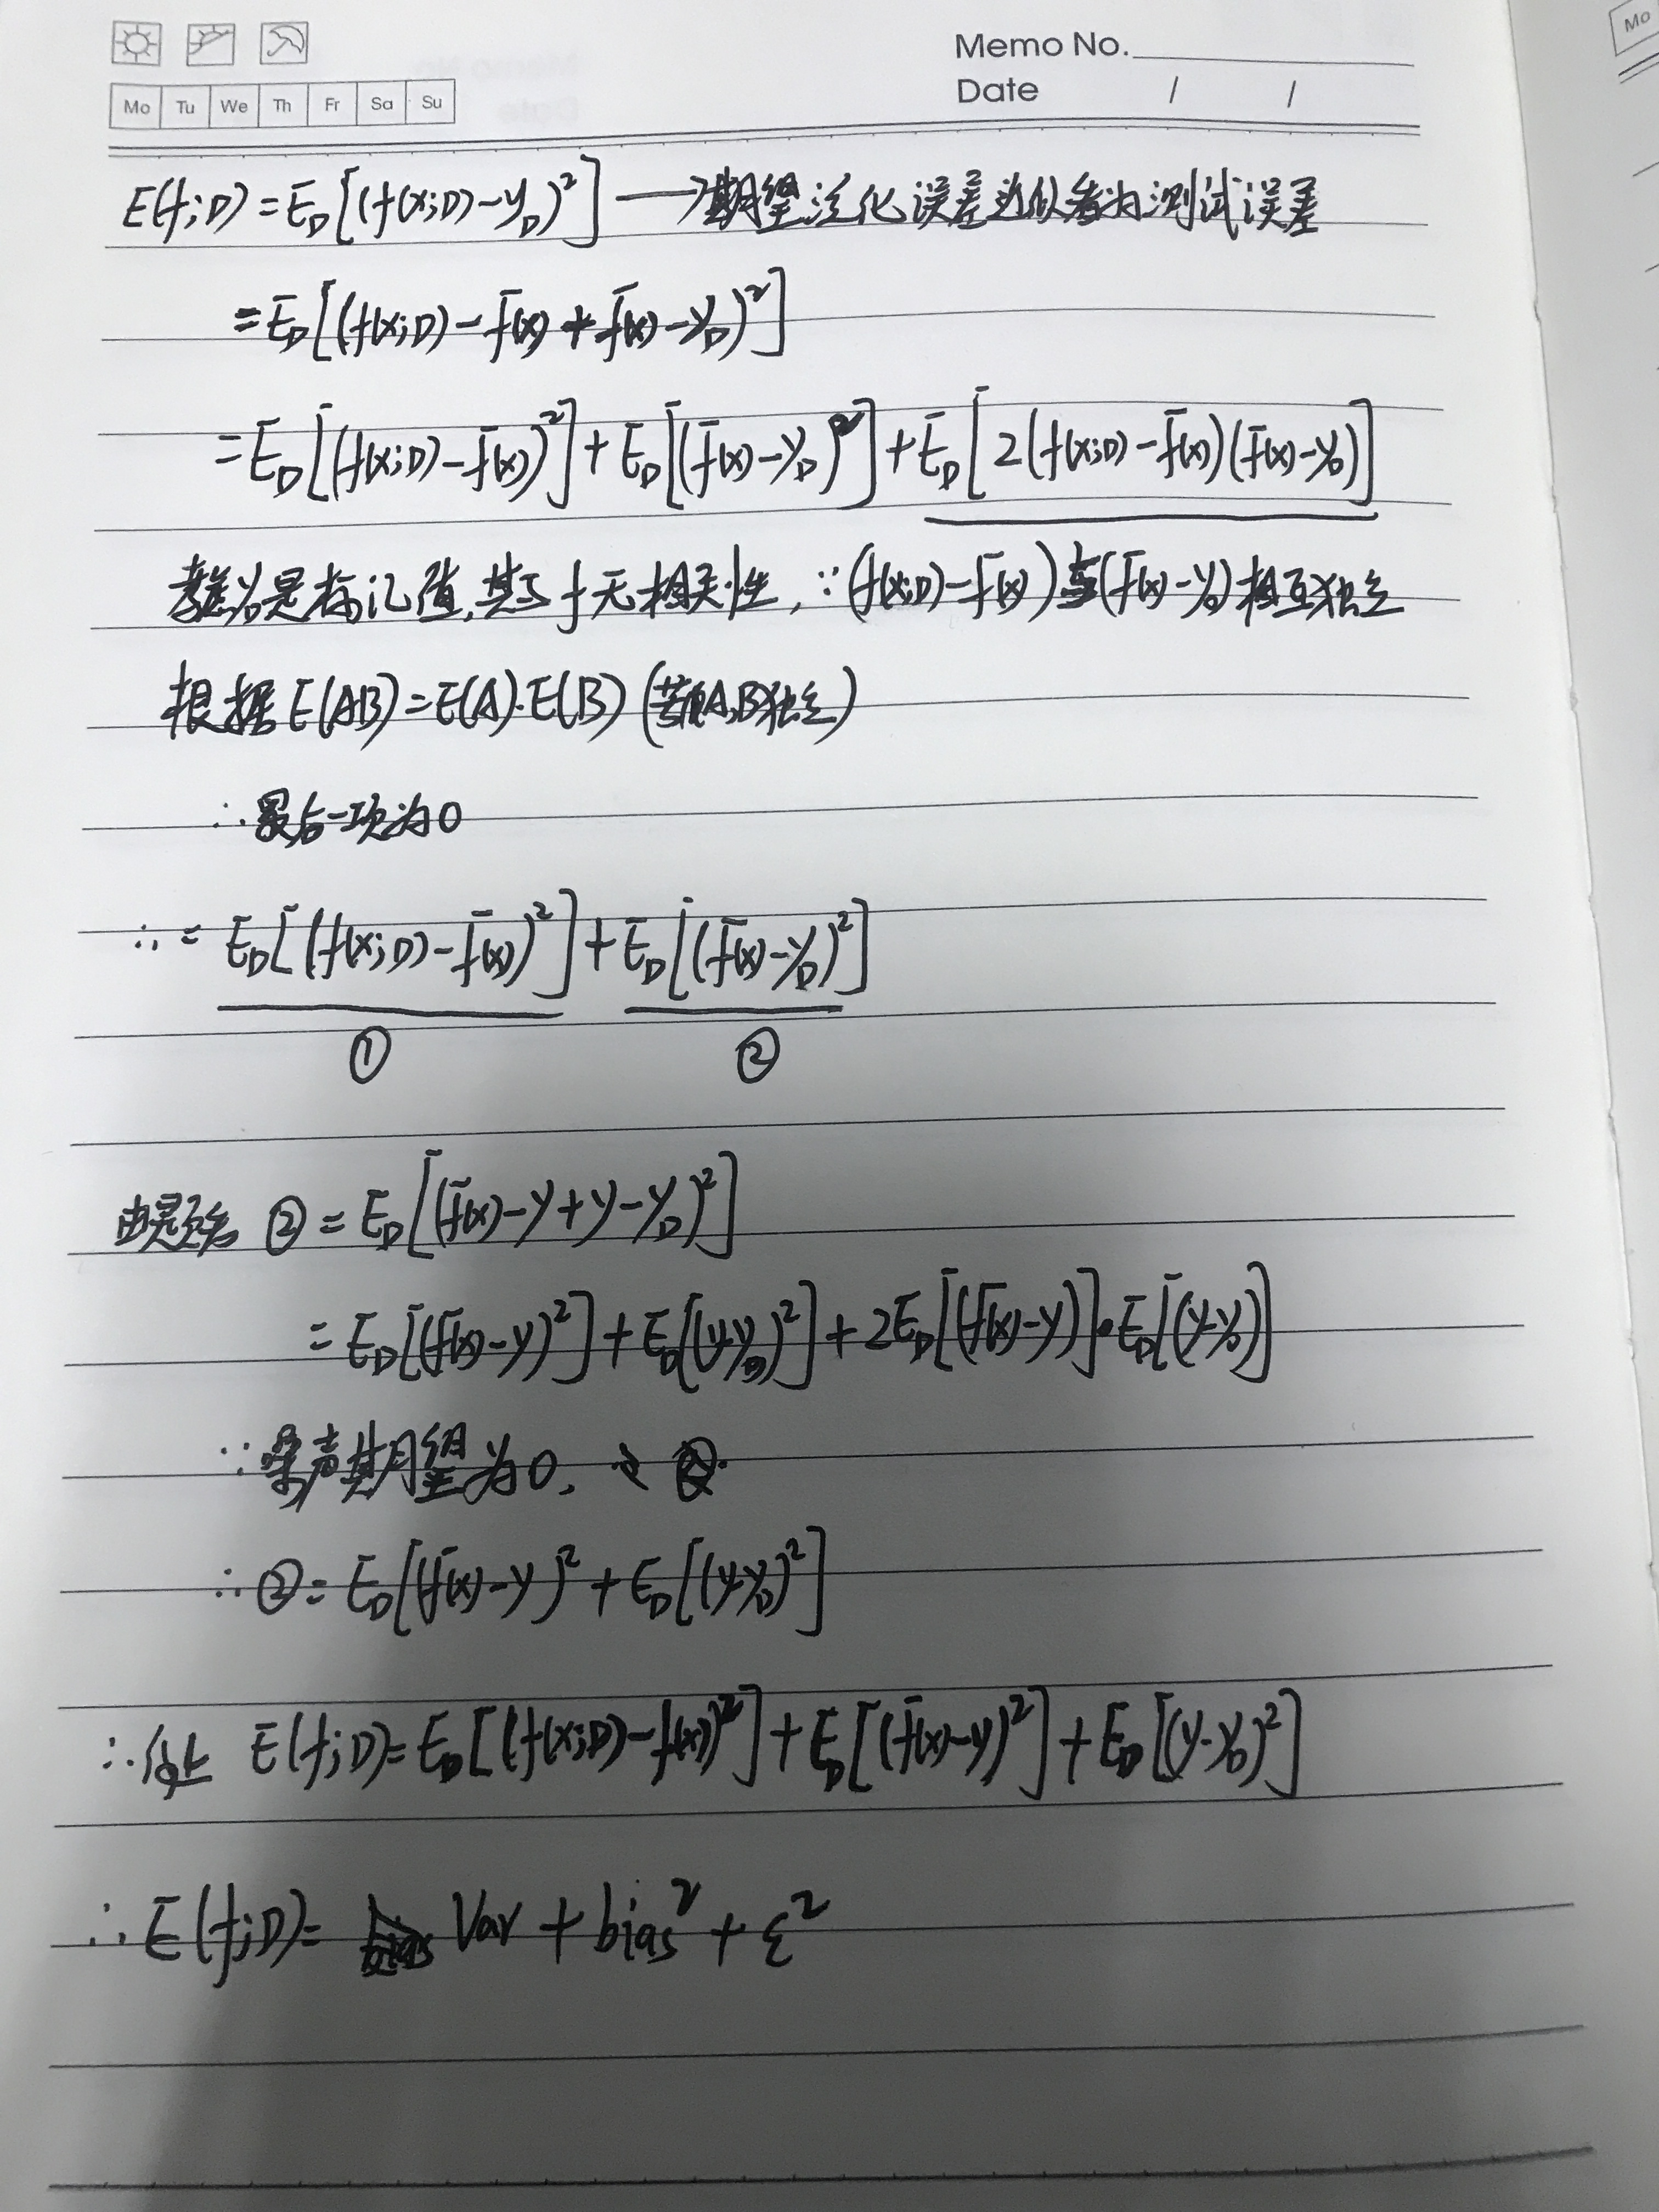 Memo No.
Mo Tu We Th Fr Sa Su
Date / /
Mo
E(f;D)=E_D[(f(x;D)-y_D)²] ⟶期望泛化误差近似看为测试误差
=E_D[(f(x;D)-f̄(x)+f̄(x)-y_D)²]
=E_D[(f(x;D)-f̄(x))²]+E_D[(f̄(x)-y_D)²]+E_D[2(f(x;D)-f̄(x))(f̄(x)-y_D)]
是标记值,其与f无相关性,∵(f(x;D)-f̄(x))与(f̄(x)-y_D)相互独立
根据E(AB)=E(A)·E(B)(若A,B独立)
∴最后一项为0
∴=E_D[(f(x;D)-f̄(x))²]+E_D[(f̄(x)-y_D)²]
① ②
②=E_D[(f̄(x)-y+y-y_D)²]
=E_D[(f̄(x)-y)²]+E_D[(y-y_D)²]+2E_D[(f̄(x)-y)]·E_D[(y-y_D)]
∵噪声期望为0,
∴②=E_D[(f̄(x)-y)²+E_D[(y-y_D)²]
∴综上 E(f;D)=E_D[(f(x;D)-f̄(x))²]+E_D[(f̄(x)-y)²]+E_D[(y-y_D)²]
∴E(f;D)= Var+bias²+ε²